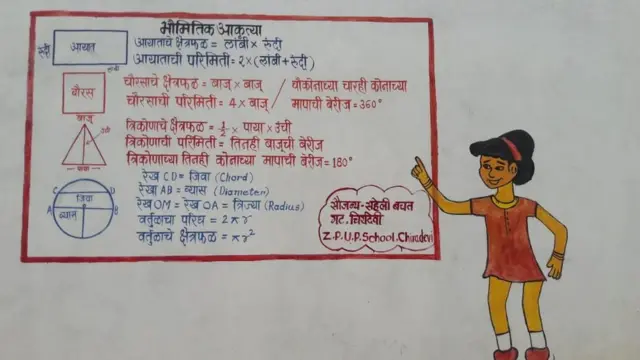 भौमितिक आकृत्या
रुंदी
आयत
लांबी
आयताचे क्षेत्रफळ = लांबी × रुंदी
आयताची परिमिती = २×(लांबी+रुंदी)
चौरस
बाजू
चौरसाचे क्षेत्रफळ = बाजू × बाजू
चौरसाची परिमिती = 4 × बाजू
चौकोनाच्या चारही कोनाच्या
मापाची बेरीज = 360°
उंची
पाया
त्रिकोणाचे क्षेत्रफळ = ½ × पाया × उंची
त्रिकोणाची परिमिती = तिनही बाजूची बेरीज
त्रिकोणाच्या तिनही कोनाच्या मापाची बेरीज = 180°
C D
जिवा
A M B
व्यास
रेख CD = जिवा (Chord)
रेख AB = व्यास (Diameter)
रेख OM = रेख OA = त्रिज्या (Radius)
वर्तुळाचा परिघ = 2πr
वर्तुळाचे क्षेत्रफळ = πr²
सौजन्य - सहेली बचत
गट. चिरादेवी
Z.P.U.P.School.Chiradevi